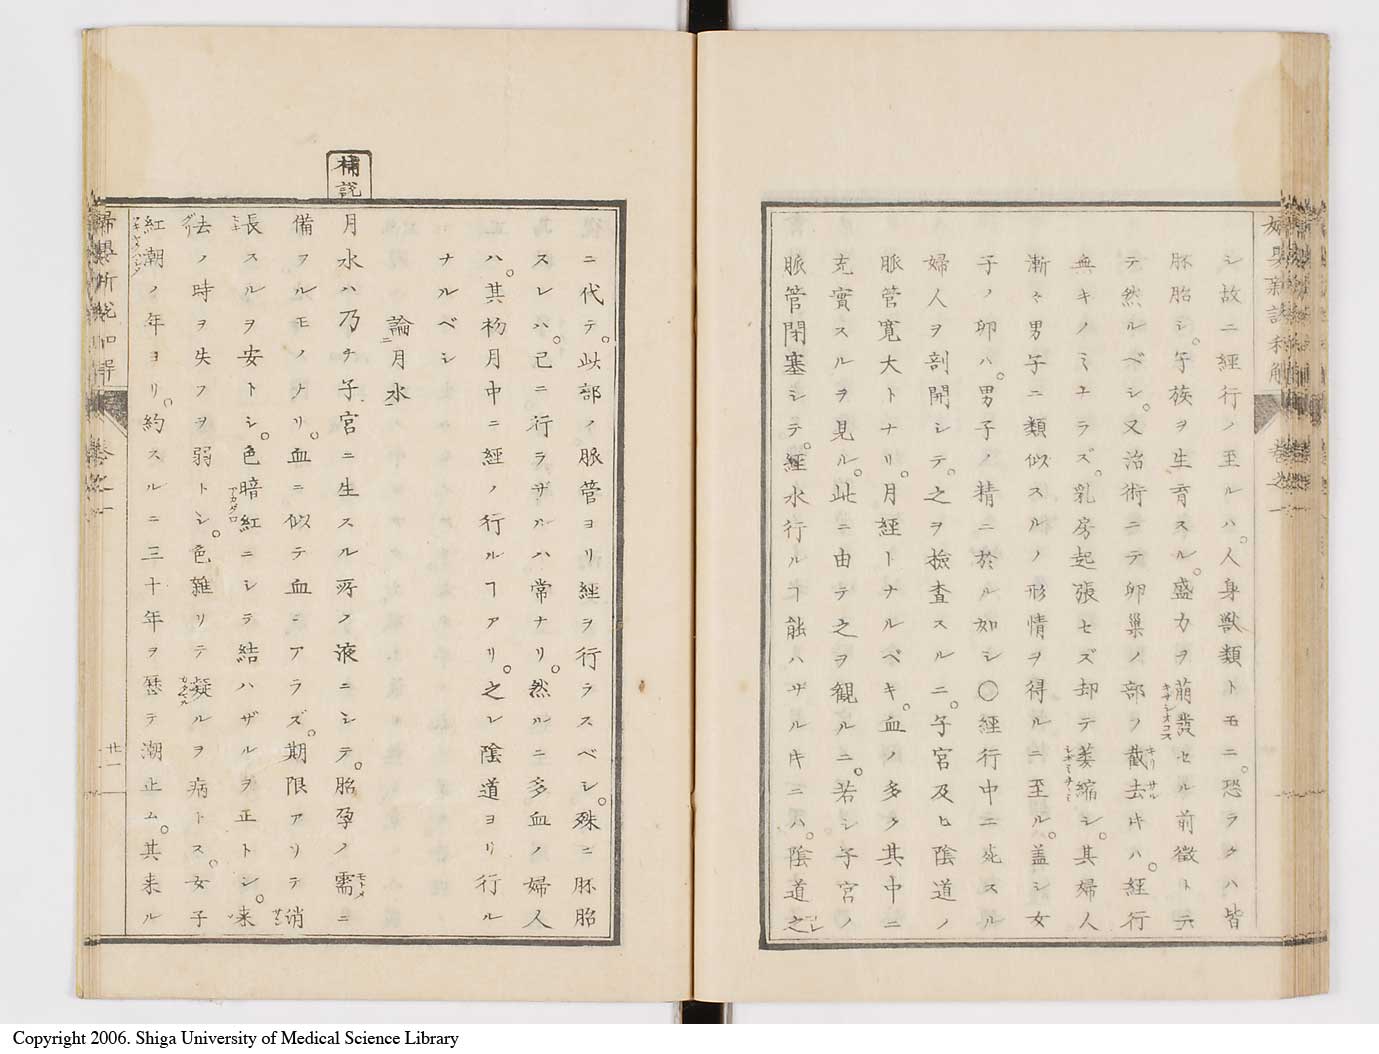 シ故ニ經行ノ至ルハ。人身獣類トモニ。恐ラクハ皆
胚胎シ。子族ヲ生育スル。盛力ヲ萠發セル前徴トテ
テ然ルベシ。又治術ニテ卵巢ノ部ノ截去キハ。經行
無キノミナラズ。乳房起張セズ却テ萎縮シ。其婦人
漸々男子ニ類似スルノ形情ヲ得ルニ至ル。盖シ女
子ノ卵ハ。男子ノ精ニ於ル如シ〇經行中ニ死スル
婦人ヲ剖開シテ。之ヲ檢査スルニ。子宮及ヒ陰道ノ
脈管寛大トナリ。月經トナルベキ。血ノ多ク其中ニ
充實スルヲ見ル。此ニ由テ之ヲ観ルニ。若シ子宮ノ
脈管閉塞シテ。經水行ルヿ能ハザルキニハ。陰道之
從ニ代テ。此部ノ脈管ヨリ經ヲ行ラスベシ。殊ニ胚胎
スレハ。已ニ行ラザルハ常ナリ。然ルニ多血ノ婦人
ハ。其初月中ニ經ノ行ルヿアリ。之レ陰道ヨリ行ル
ナルベシ
論月水
補説
月水ハ乃チ子宮ニ生スル所ノ液ニシテ。胎孕ノ需ニ
備フルモノナリ。血ニ似テ血ニアラズ。期限アリテ消
長スルヲ安トシ。色暗紅ニシテ結ハザルヲ正トシ。来
去ノ時ヲ失フヲ弱トシ。色雜リテ凝ルヲ病トス。女子
紅潮ノ年ヨリ。約スルニ三十年ヲ歴テ潮止ム。其来ル